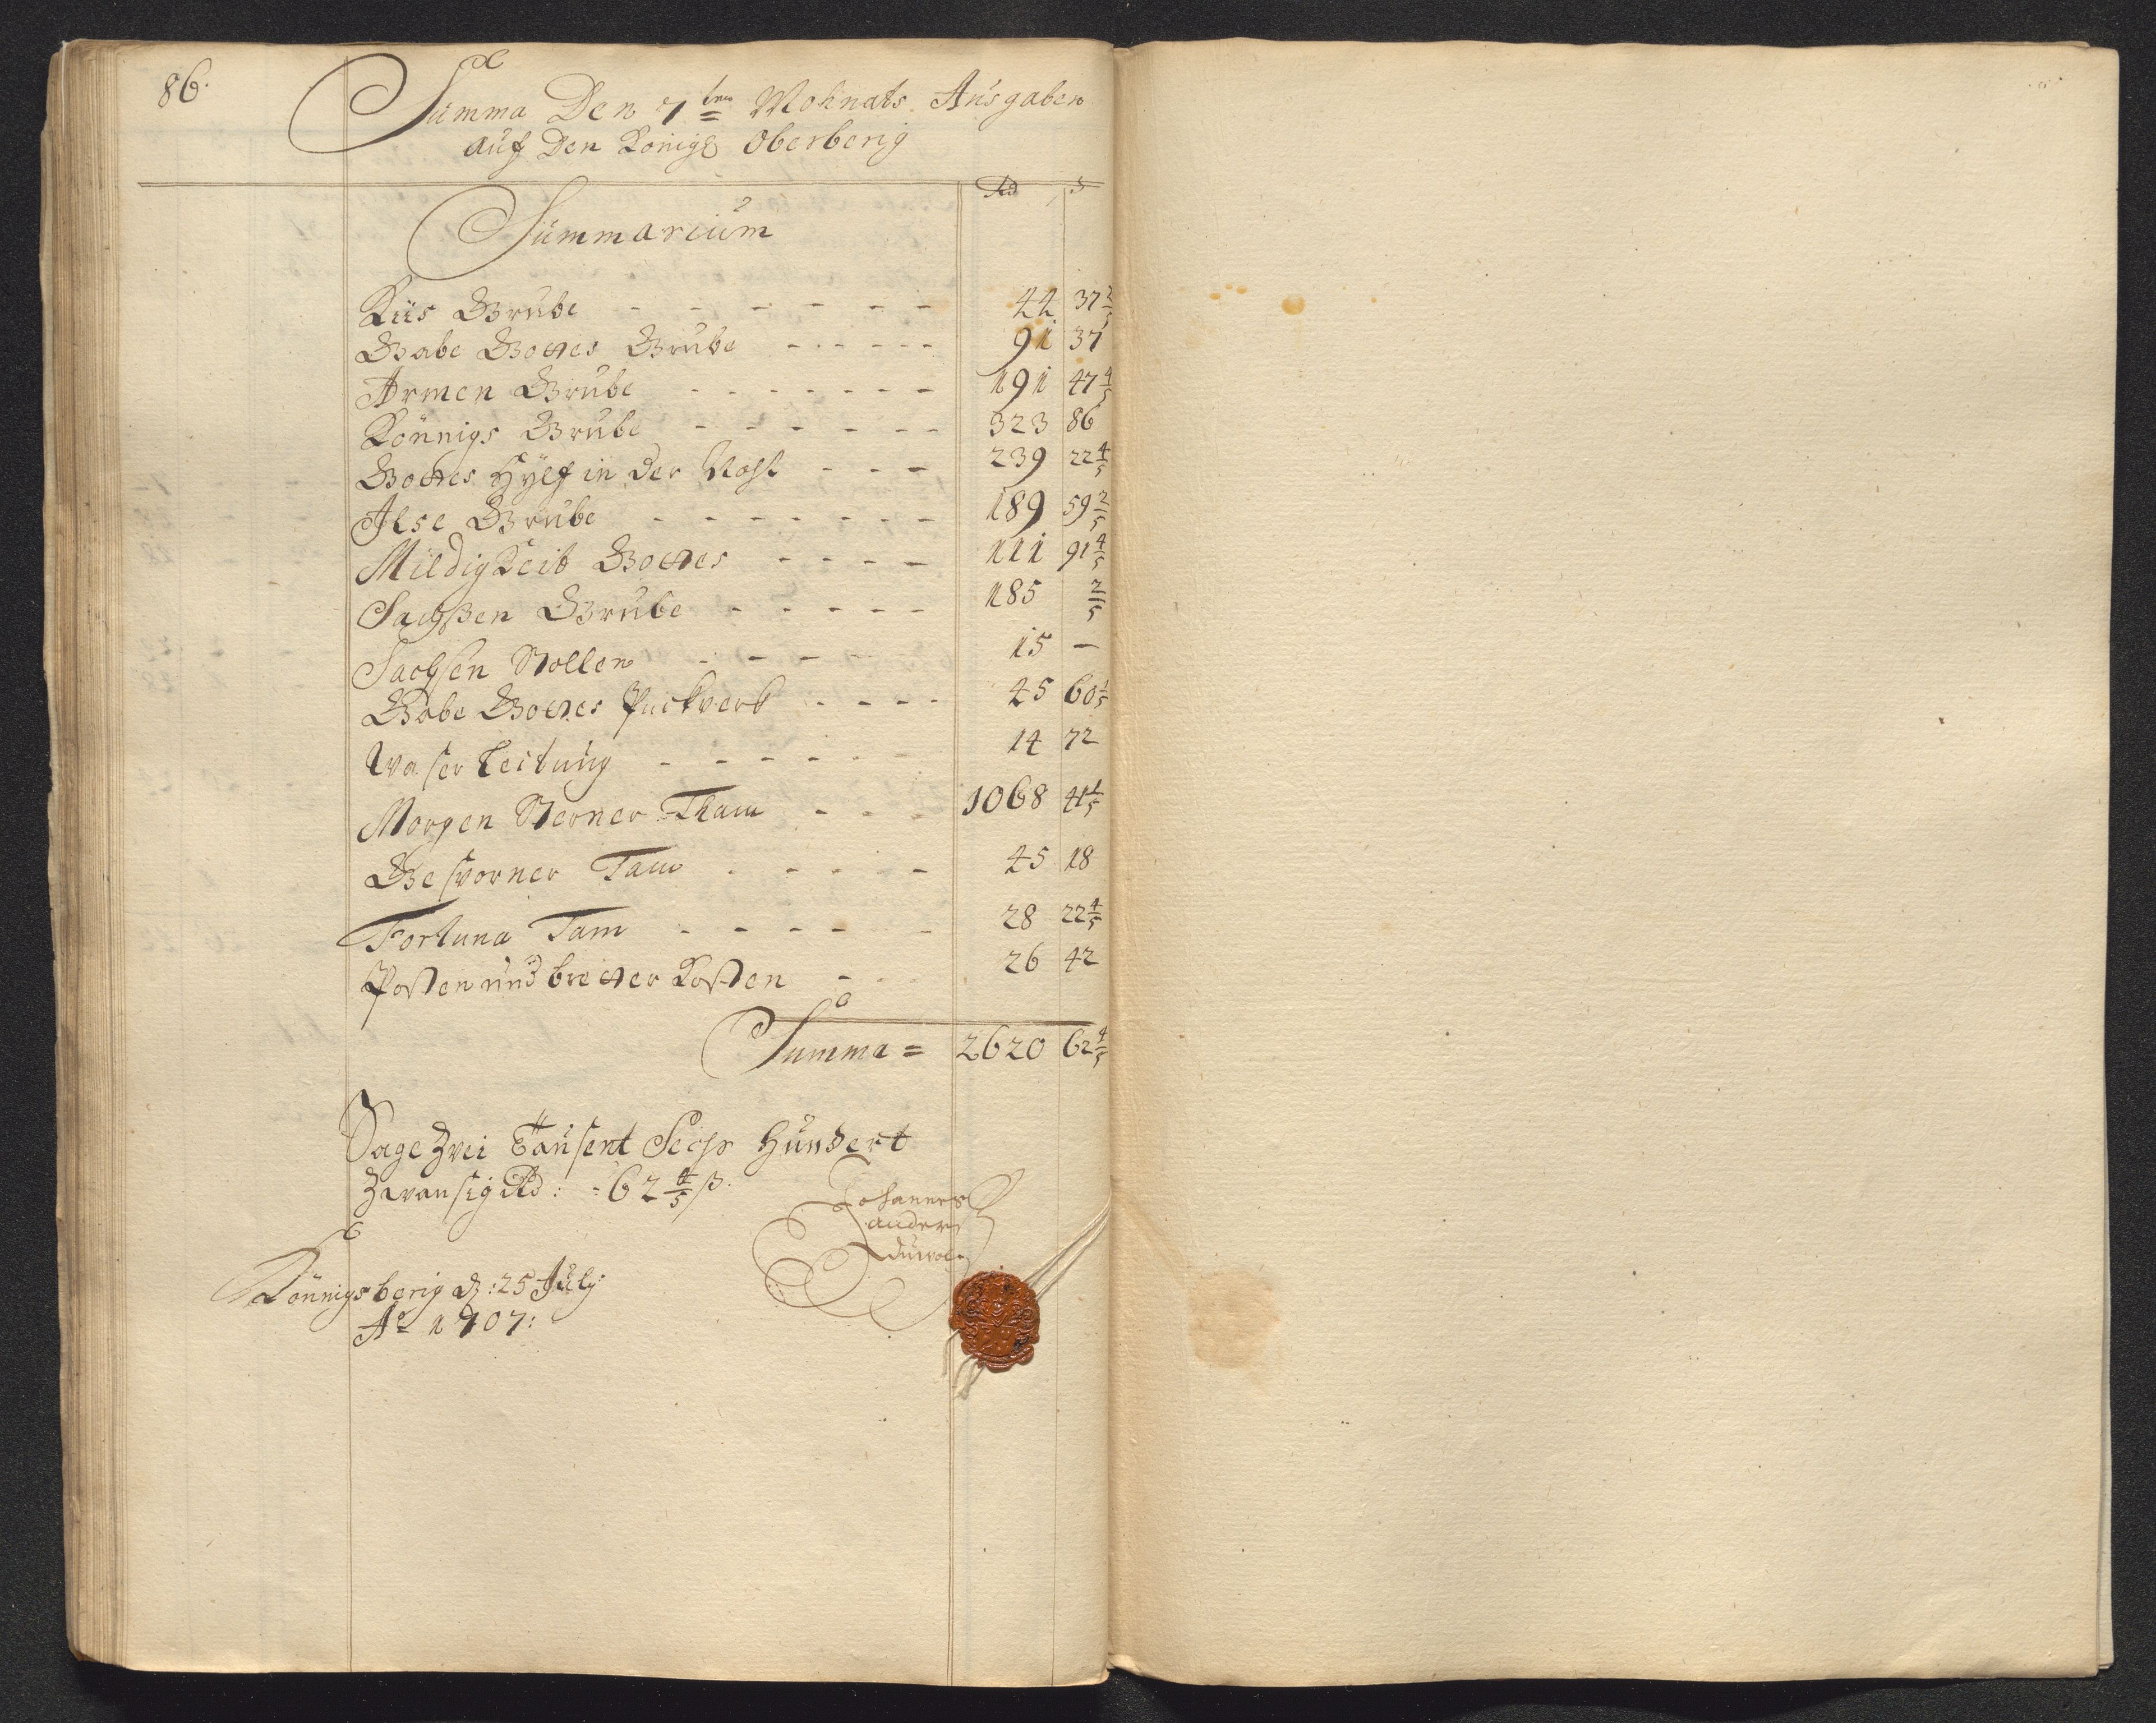 86.
Summa Den 7ten Mohnats Ausgaben
auf Den Königs Oberberig
Rd ß
Summarium
Küs Grube - - - - - - - 44 37 2/5
Gabe Gottes Grube - - - - - - 91 37
Armen Grube - - - - - - - 191 47 4/5
Könnigs Grube - - - - - - 323 86
Gottes Hylf in der Noht - - - 239 22 4/5
Ilse Grube - - - - - - - 189 59 2/5
Mildigkeit Gottes - - - - 111 91 4/5
Sachßen Grube - - - - - 185 2/5
Sachsen Stollen - - - - 15 -
Gabe Gottes Puckverk - - - - 45 60 1/5
Waser Leitung - - - - - - 14 72
Morgen Sterner Tham - - - 1068 41 1/5
Gesvorner Tam - - - - - 45 18
Fortuna Tam - - - - - 28 22 4/5
Posten und bretter Kosten - - - 26 42
Summa = 2620 62 4/5
Sage Zvei Tausent Sechs Hundert
Zwansig Rd: = 62 4/5 ß.
Johannes
ander
Könnigsberig d: 25 July
Ao 1707: